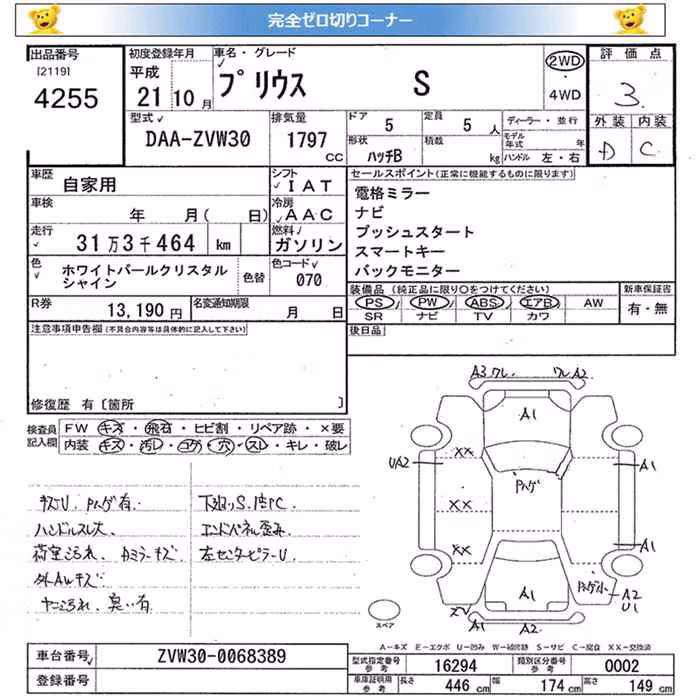 完全ゼロ切りコーナー
出品番号 初度登録年月 車名・グレード 評価点
[2119] 平成 プリウス S 2WD 3
4255 21 10月 4WD
型式 排気量 ドア 5 定員 5人 ディーラー・並行 外装 内装
DAA-ZVW30 1797 CC 形状 ハッチB 積載 kg モデル年式 年 D C
ハンドル 左・右
車歴 自家用 シフト IAT セールスポイント(正常に機能するものに限ります)
車検 年 月( 日) 冷房 AAC 電格ミラー
ナビ
走行 31万3千464 km 燃料 ガソリン プッシュスタート
スマートキー
色 ホワイトパールクリスタルシャイン 色替 色コード 070 バックモニター
R券 13,190円 名変通知期限 月 日 装備品 (純正品に限り〇をつけてください) 新車保証書
PS PW ABS エアB AW 有・無
SR ナビ TV カワ
注意事項申告欄(不具合内容等は具体的に記入して下さい) 後日品
修復歴 有〔箇所 〕
検査員記入欄 FW キズ・飛石・ヒビ割・リペア跡・×要
内装 キズ・汚レ・コゲ・穴・スレ・キレ・破レ
A3ワレ ワレA2
A1
UA2 XX A1
Pハゲ
XX
XX A1
A1 Pハゲ小 A2
U1
XV A2
キズU、Pハゲ有 下廻りS、
ハンドルスレ大、 エンドパネル歪み
荷室こゞれ、 左センターピラーU
外AWキズ
ヤニ 臭い有
スペア
A-キズ E-エクボ U-凹み W-補修跡 S-サビ C-腐食 XX-交換済
車台番号 ZVW30-0068389 型式指定番号 参考 16294 類別区分番号 参考 0002
登録番号 車庫証明用 参考 長さ 446 cm 幅 174 cm 高さ 149 cm